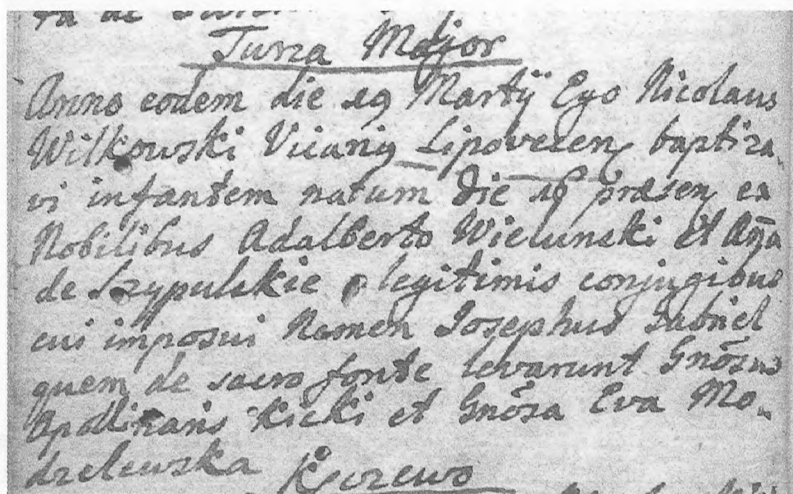 Turza Major
Anno eodem die 19 Martÿ Ego Nicolaus
Wilkowski Vicariq Lipovecen baptiza-
vi infantem natum die 16 præsen ex
Nobilibus Adalberto Wielunski et Anña
de Szypulskie legitimis conjugibus
cui imposui Nomen Josephus Gabriel
quem de sacro fonte levarunt Gnõsus
Apollinaris Kicki et Gnõsa Eva Mo-
dzelewska